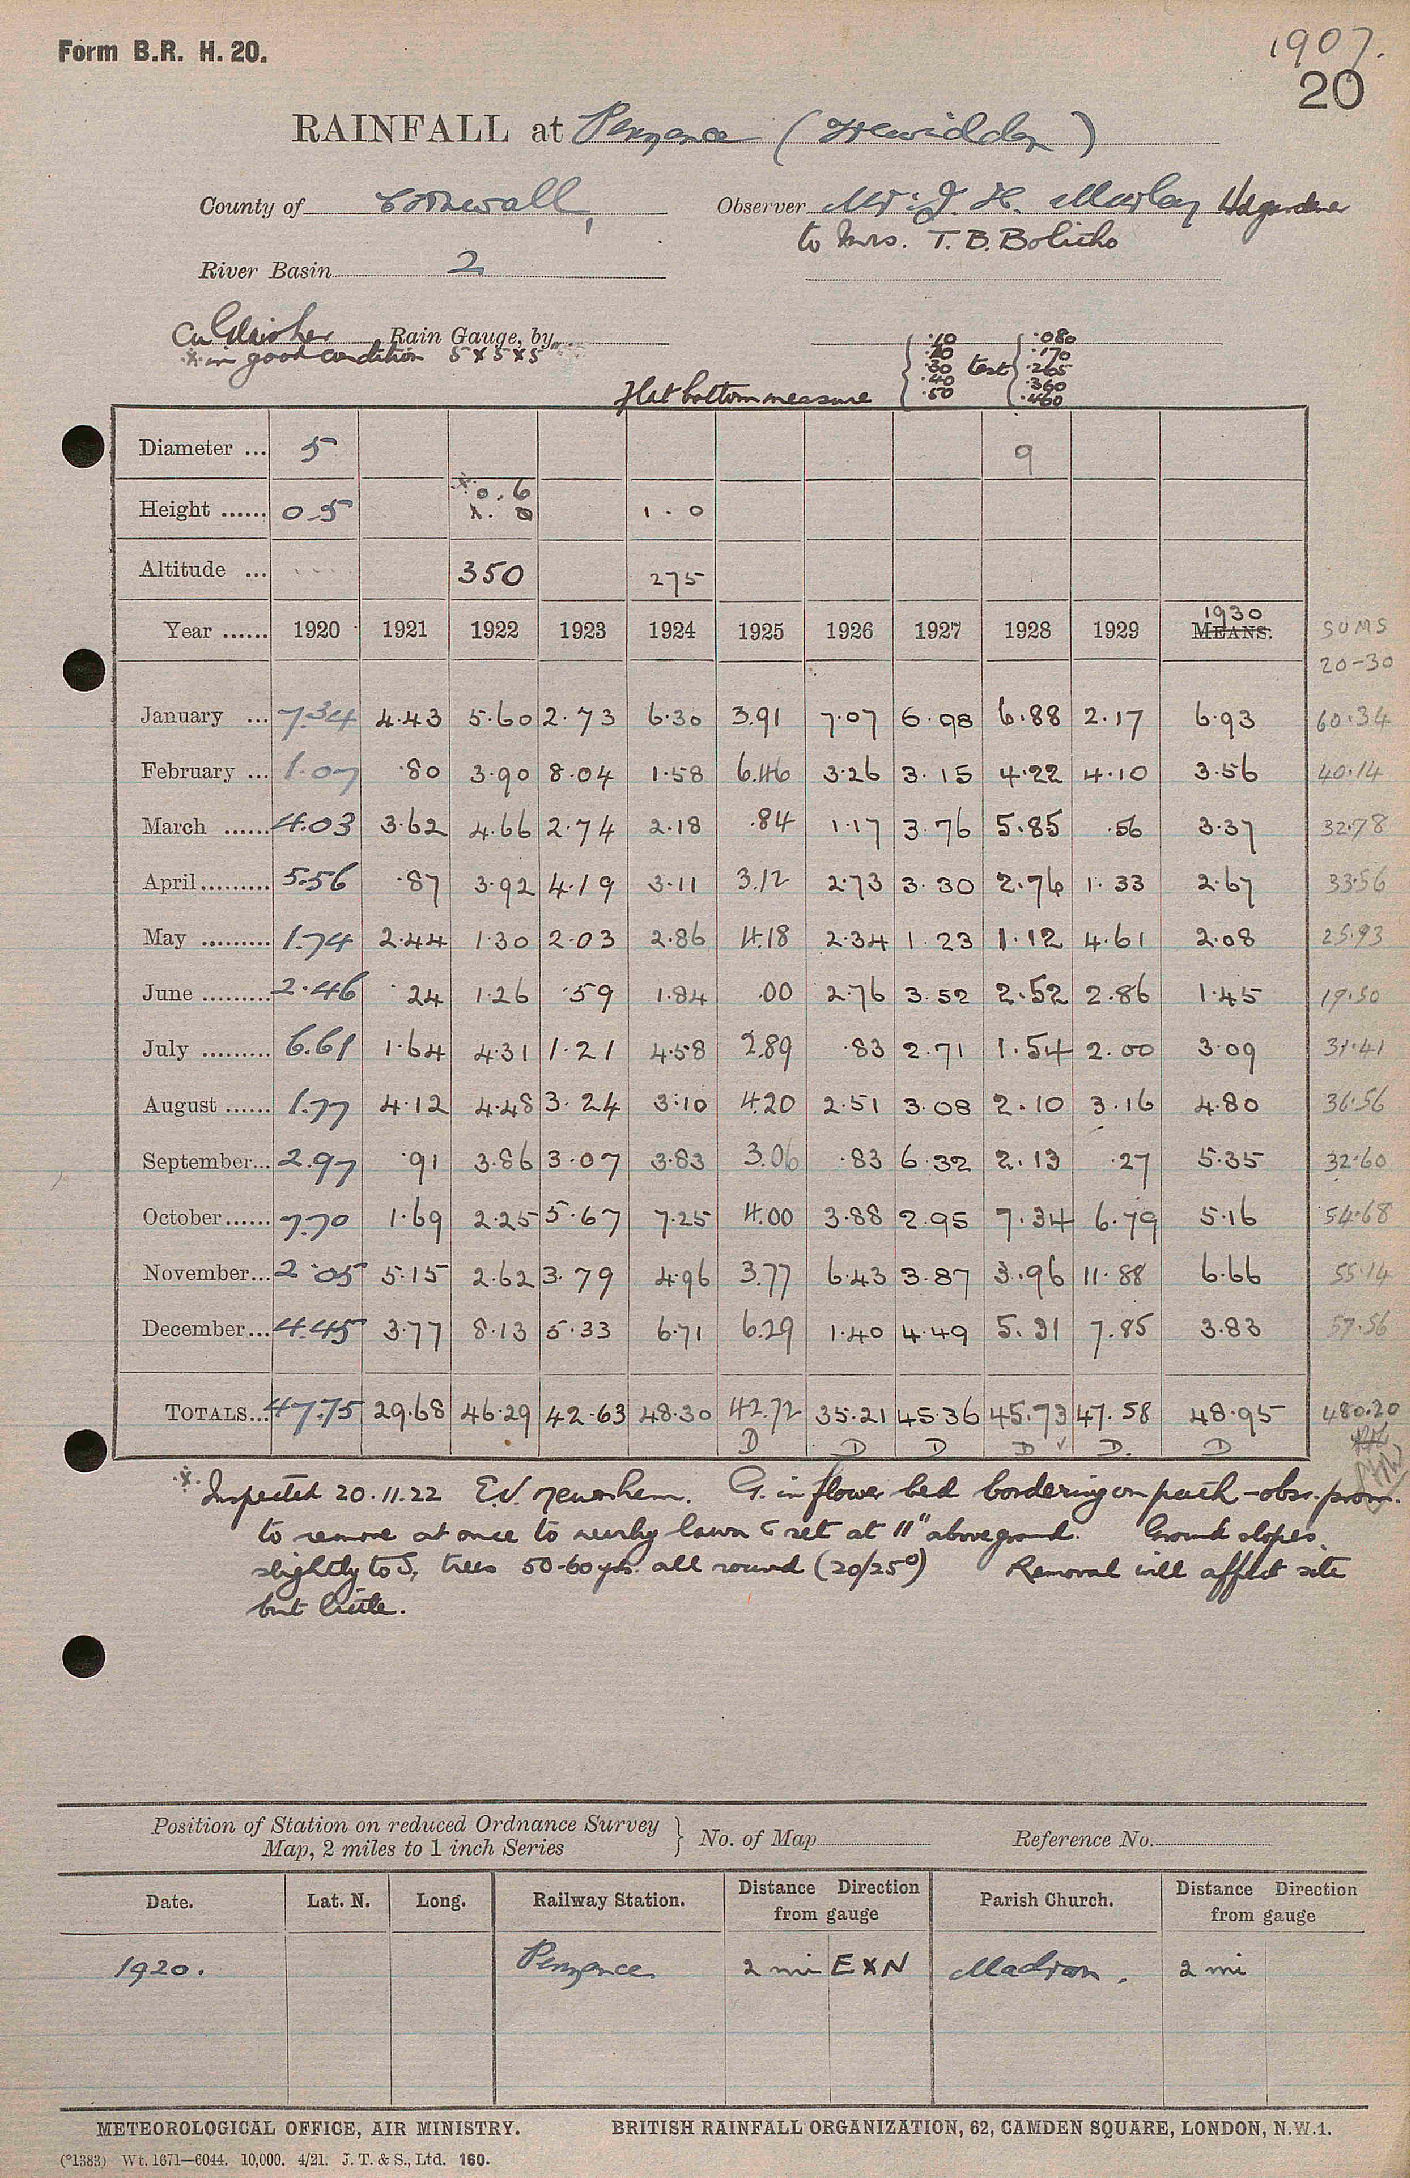 Form B.R. H. 20.
1907.
20
RAINFALL at Penzance (Trewidden)
County of Cornwall,
Observer Mr. J. H. Marlay Hd gardener
to Mrs. T. B. Bolitho
River Basin 2
Cu Glaisher Rain Gauge, by
* in good condition 5 x 5 x 5
Flat bottom measure
.10 .20 .30 .40 .50 test .080 .170 .265 .360 .460
Diameter ... 5 9
Height ...... 0.5 * 0.6 1.0
1.0
Altitude ... 350 275
Year ...... 1920 1921 1922 1923 1924 1925 1926 1927 1928 1929 1930 MEANS. SUMS
20-30
January ... 7.34 4.43 5.60 2.73 6.30 3.91 7.07 6.98 6.88 2.17 6.93 60.34
February ... 1.07 .80 3.90 8.04 1.58 6.46 3.26 3.15 4.22 4.10 3.56 40.14
March ...... 4.03 3.62 4.66 2.74 2.18 .84 1.17 3.76 5.85 .56 3.37 32.78
April ......... 5.56 .87 3.92 4.19 3.11 3.12 2.73 3.30 2.76 1.33 2.67 33.56
May ......... 1.74 2.44 1.30 2.03 2.86 4.18 2.34 1.23 1.12 4.61 2.08 25.93
June ......... 2.46 .24 1.26 .59 1.84 .00 2.76 3.52 2.52 2.86 1.45 19.50
July ......... 6.61 1.64 4.31 1.21 4.58 2.89 .83 2.71 1.54 2.00 3.09 31.41
August ...... 1.77 4.12 4.48 3.24 3.10 4.20 2.51 3.08 2.10 3.16 4.80 36.56
September... 2.97 .91 3.86 3.07 3.83 3.06 .83 6.32 2.13 .27 5.35 32.60
October...... 7.70 1.69 2.25 5.67 7.25 4.00 3.88 2.95 7.34 6.79 5.16 54.68
November... 2.05 5.15 2.62 3.79 4.96 3.77 6.43 3.87 3.96 11.88 6.66 55.14
December... 4.45 3.77 8.13 5.33 6.71 6.29 1.40 4.49 5.31 7.85 3.83 57.56
TOTALS... 47.75 29.68 46.29 42.63 48.30 42.72 35.21 45.36 45.73 47.58 48.95 480.20
D D D D ✓ D. D
* Inspected 20.11.22 E.V. Newnham. G. in flower bed bordering on path - obsr. prom.
to remove at once to nearby lawn & set at 11" above ground. Ground slopes
slightly to S, trees 50-60 yds. all round (20/25°) Removal will affect site
but little.
Position of Station on reduced Ordnance Survey
Map, 2 miles to 1 inch Series } No. of Map Reference No.
Date. Lat. N. Long. Railway Station. Distance Direction from gauge Parish Church. Distance Direction from gauge
1920. Penzance 2 mi E x N Madron. 2 mi
METEOROLOGICAL OFFICE, AIR MINISTRY. BRITISH RAINFALL ORGANIZATION, 62, CAMDEN SQUARE, LONDON, N.W.1.
(*1383) Wt. 1671—6044. 10,000. 4/21. J. T. & S., Ltd. 160.